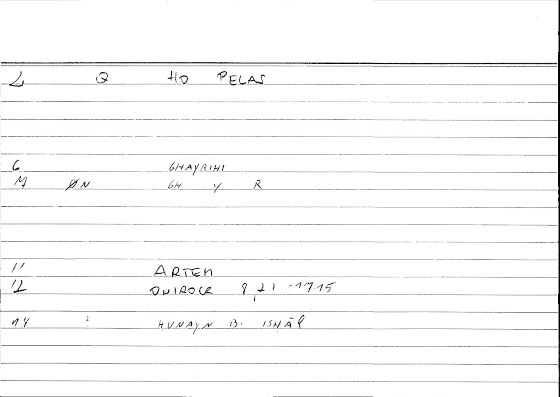 L Q HO PELAS
6 GHAYRIHI
M ØN GH Y R
11 ARTEM
12 ONIROCR 9,21 -17.15
14 : ḤUNAYN B. ISḤĀQ